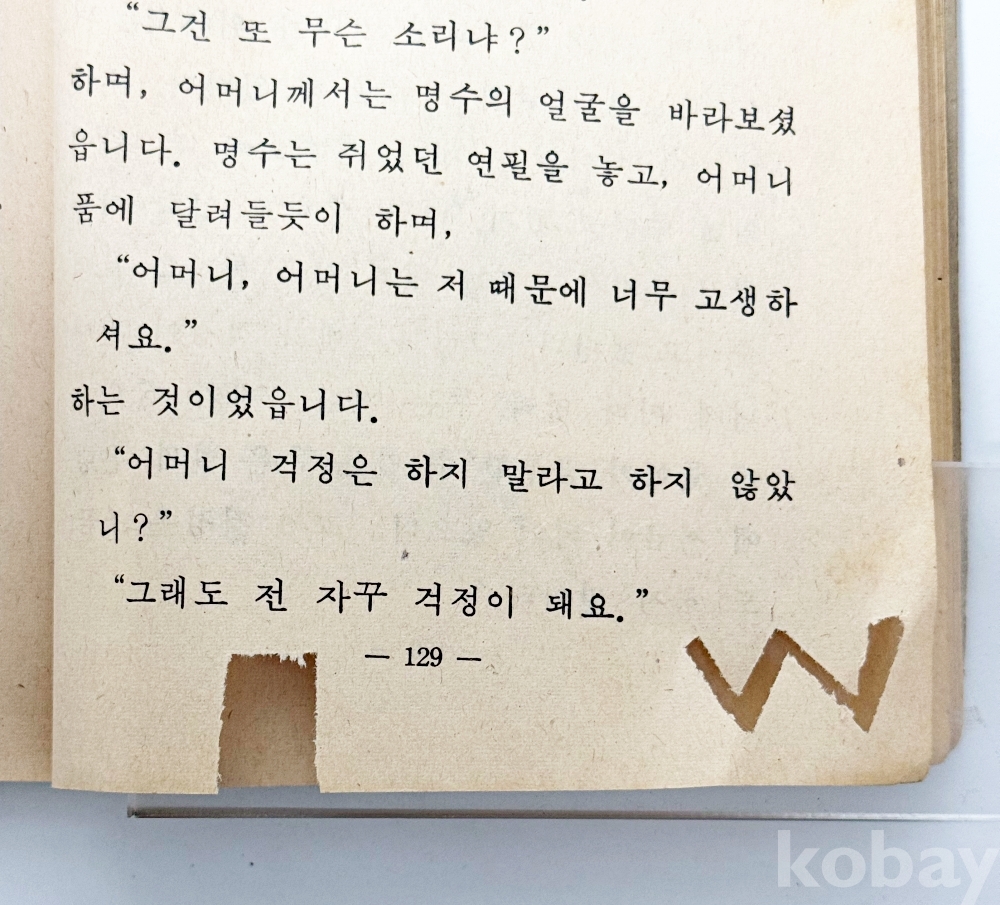 “그건 또 무슨 소리냐?”
하며, 어머니께서는 명수의 얼굴을 바라보셨
읍니다. 명수는 쥐었던 연필을 놓고, 어머니
품에 달려들듯이 하며,
“어머니, 어머니는 저 때문에 너무 고생하
셔요.”
하는 것이었읍니다.
“어머니 걱정은 하지 말라고 하지 않았
니?”
“그래도 전 자꾸 걱정이 돼요.”
— 129 —
kobay